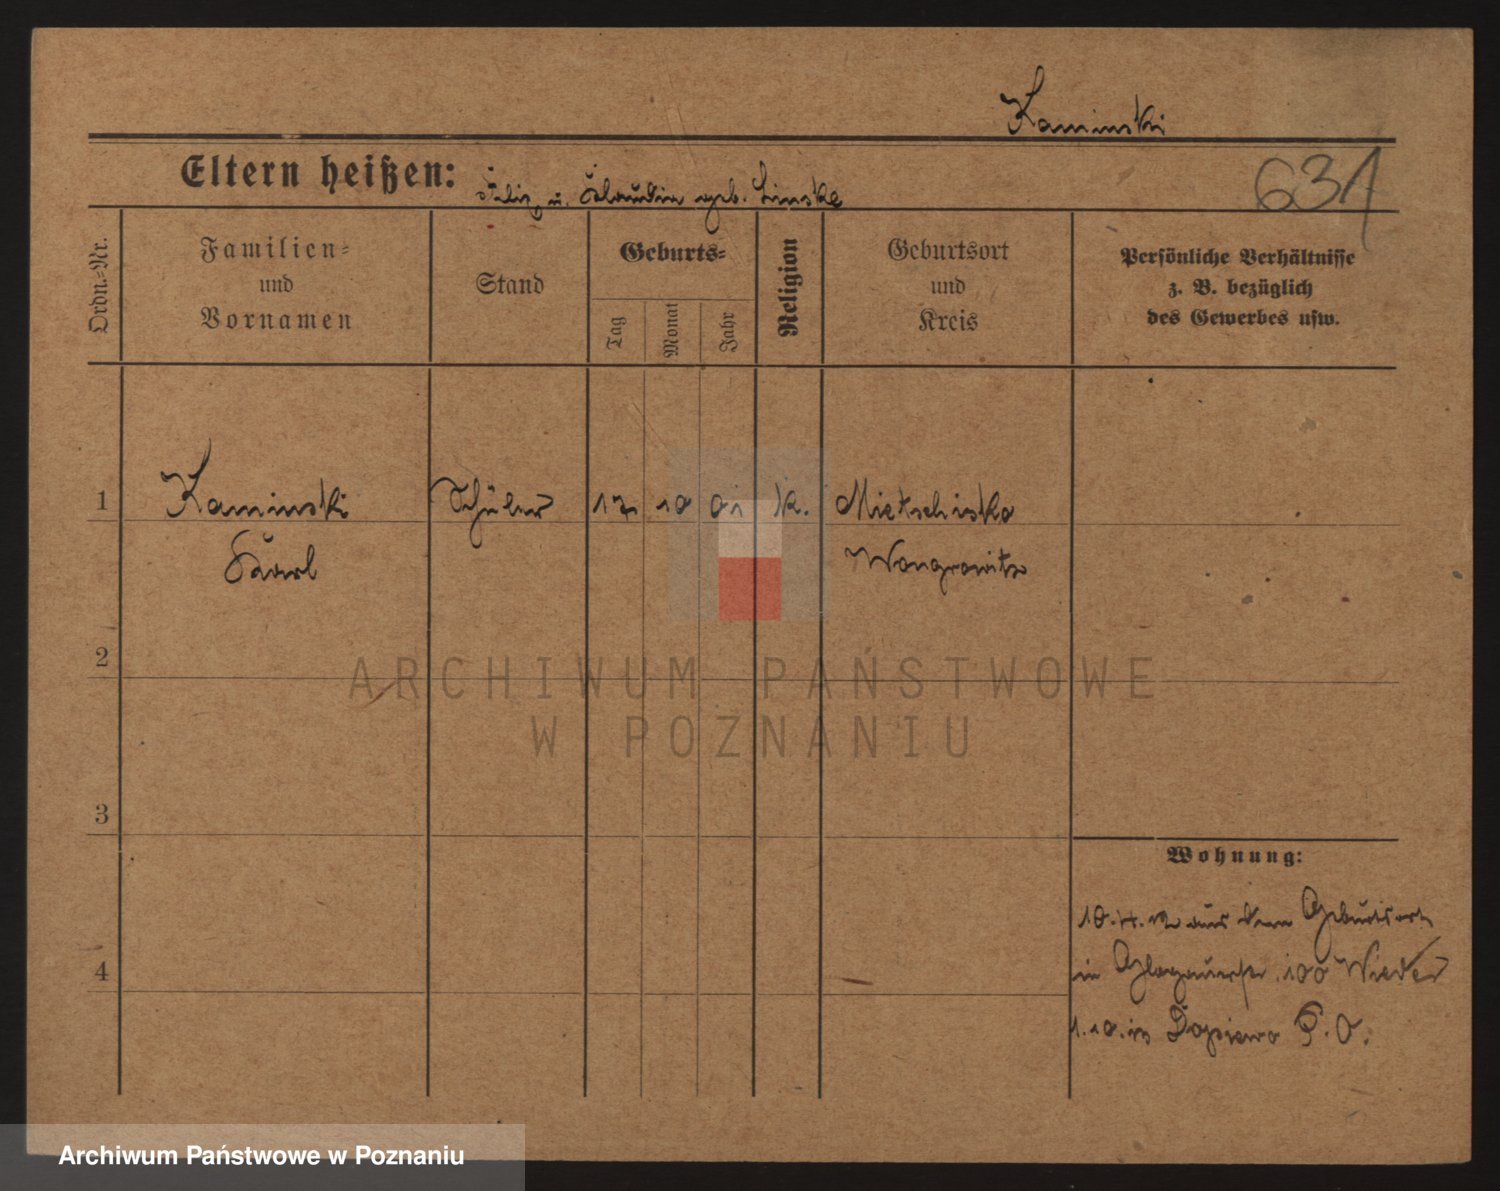 Kaminski
631
Eltern heißen: Felix u. Klaudia geb. Linske
Ordn.=Nr.
Familien=
und
Vornamen
Stand
Geburts=
Tag
Monat
Jahr
Religion
Geburtsort
und
Kreis
Persönliche Verhältnisse
z. B. bezüglich
des Gewerbes usw.
1 Kaminski Schüler 17 10 01 k. Mietschisko
Karl Wongrowitz
2
ARCHIWUM PAŃSTWOWE
W POZNANIU
3
Wohnung:
10.4. aus dem Geburtsort
4
in Glogauerstr. 100 Wieder
1.10. in Dopiewo P. O.
Archiwum Państwowe w Poznaniu